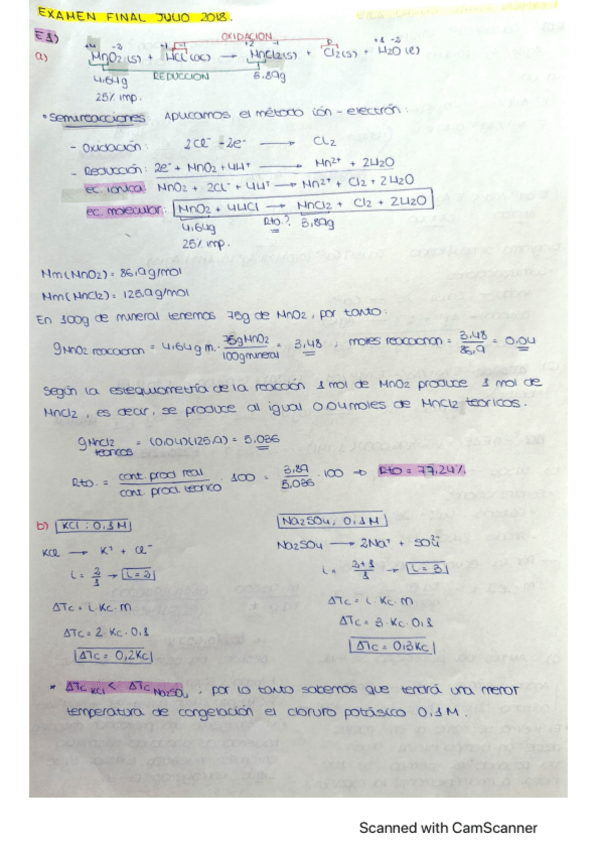 EXAMEN FINAL JULIO 2018.
E1)
OXIDACION
+4 -2 +1 -1 +2 -1 0 +1 -2
a) MnO2(s) + HCl(ac) → MnCl2(s) + Cl2(s) + H2O(l)
REDUCCION
4,64g 3,89g
25% imp.
• Semireacciones: Aplicamos el método ión-electrón:
- Oxidación: 2Cl⁻ -2e⁻ → Cl2
- Reducción: 2e⁻ + MnO2 + 4H⁺ → Mn²⁺ + 2H2O
ec. iónica: MnO2 + 2Cl⁻ + 4H⁺ → Mn²⁺ + Cl2 + 2H2O
ec. molecular: MnO2 + 4HCl → MnCl2 + Cl2 + 2H2O
4,64g Rto.? 3,89g
25% imp.
Mm(MnO2) = 86,9g/mol
Mm(MnCl2) = 125,9g/mol
En 100g de mineral tenemos 75g de MnO2, por tanto:
gMnO2 reaccionan = 4,64g m. · 75gMnO2 / 100g mineral = 3,48 ; moles reaccionan = 3,48 / 86,9 = 0,04
Según la estequiometría de la reacción 1 mol de MnO2 produce 1 mol de
MnCl2, es decir, se produce al igual 0,04 moles de MnCl2 teóricos.
gMnCl2 teóricos = (0,04)(125,9) = 5,036
Rto. = cant. prod real / cant. prod teórico · 100 = 3,89 / 5,036 · 100 → Rto = 77,24%
b) KCl : 0,1M Na2SO4 : 0,1M
KCl → K⁺ + Cl⁻ Na2SO4 → 2Na⁺ + SO4²⁻
i = 2/1 → i = 2 i = 2+1/1 → i = 3
ΔTc = i · Kc · m ΔTc = i · Kc · m
ΔTc = 2 · Kc · 0,1 ΔTc = 3 · Kc · 0,1
ΔTc = 0,2Kc ΔTc = 0,3Kc
* ΔTc KCl < ΔTc Na2SO4, por lo tanto sabemos que tendrá una menor
temperatura de congelación el cloruro potásico 0,1M.
Scanned with CamScanner